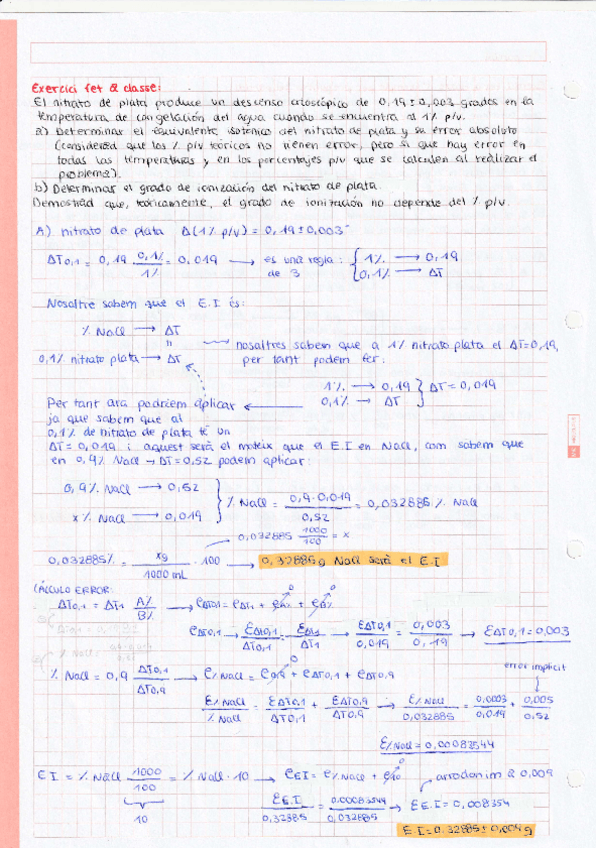 Exercici fet a classe:
El nitrato de plata produce un descenso crioscópico de 0,19 ± 0,003 grados en la
temperatura de congelación del agua cuando se encuentra al 1% p/v.
a) Determinar el equivalente isotónico del nitrato de plata y su error absoluto
(considered que los % p/v teóricos no tienen error, pero sí que hay error en
todas las temperaturas y en los porcentajes p/v que se calculen al realizar el
problema).
b) Determinar el grado de ionización del nitrato de plata.
Demostrad que, teóricamente, el grado de ionización no depende del % p/v.
A) nitrato de plata Δ(1% p/v) = 0,19 ± 0,003°
ΔT0,1 = 0,19 · 0,1% / 1% = 0,019 → es una regla de 3 : { 1% → 0,19
0,1% → ΔT
Nosaltre sabem que el E.I és:
% NaCl → ΔT
"
0,1% nitrato plata → ΔT
nosaltres sabem que a 1% nitrato plata el ΔT=0,19,
per tant podem fer:
1% → 0,19 } ΔT = 0,019
0,1% → ΔT
Per tant ara podríem aplicar
ja que sabem que al
0,1% de nitrato de plata té un
ΔT = 0,019 i aquest serà el mateix que el E.I en NaCl, com sabem que
en 0,9% NaCl → ΔT = 0,52 podem aplicar:
0,9% NaCl → 0,52
x% NaCl → 0,019 } % NaCl = 0,9 · 0,019 / 0,52 = 0,032885 % NaCl
0,032885 1000/100 = x
0,032885% = xg / 1000 mL · 100 → 0,32885 g NaCl serà el E.I
CÀLCULO ERROR:
ΔT0,1 = ΔT1 A%/B% → eΔT0,1 = eΔT1 + eA% + eB%
0
0
eΔT0,1 → EΔT0,1/ΔT0,1 = EΔT1/ΔT1 → EΔT0,1/0,019 = 0,003/0,19 → EΔT0,1 = 0,003
% NaCl = 0,9 ΔT0,1/ΔT0,9 → e% NaCl = e0,9 + eΔT0,1 + eΔT0,9
0
error implícit
E% NaCl/% NaCl = EΔT0,1/ΔT0,1 + EΔT0,9/ΔT0,9 → E% NaCl/0,032885 = 0,0003/0,019 + 0,005/0,52
E% NaCl = 0,00083544
EI = % NaCl 1000/100 = % NaCl · 10 → eEI = e% NaCl + e10
0
10
arrodonim a 0,009
EE.I/0,32885 = 0,00083544/0,032885 → EE.I = 0,008354